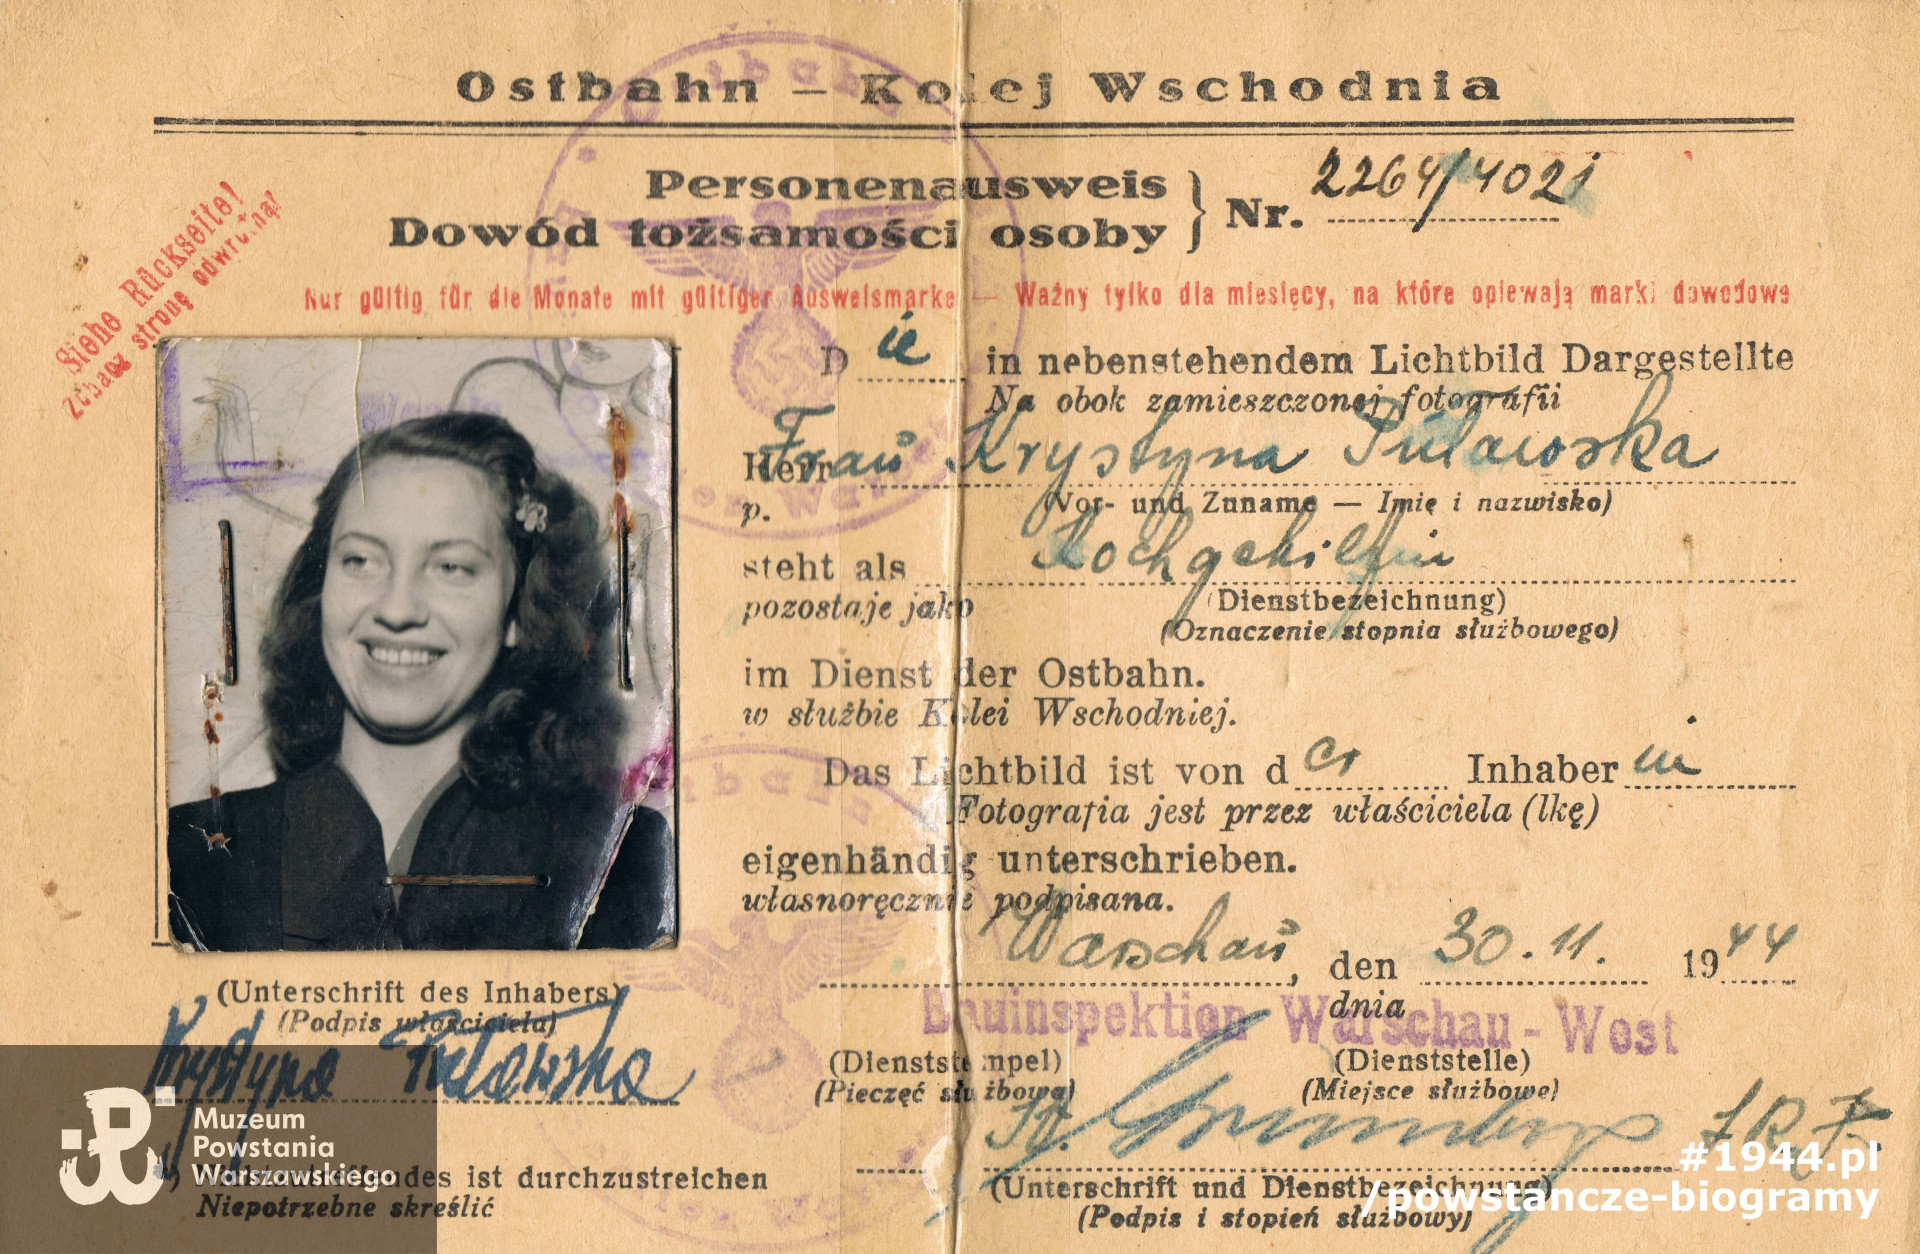 Ostbahn — Kolej Wschodnia
Personenausweis
Dowód tożsamości osoby } Nr. 2264/4021
Siehe Rückseite!
Zobacz stronę odwrotną!
Nur gültig für die Monate mit gültiger Ausweismarke — Ważny tylko dla miesięcy, na które opiewają marki dowodowe
Die in nebenstehendem Lichtbild Dargestellte
Na obok zamieszczonej fotografii
Herr Frau Krystyna Puławska
p.
(Vor- und Zuname — Imię i nazwisko)
steht als Kochgehilfin
pozostaje jako
(Dienstbezeichnung)
(Oznaczenie stopnia służbowego)
im Dienst der Ostbahn.
w służbie Kolei Wschodniej.
Das Lichtbild ist von der Inhaberin
Fotografia jest przez właściciela (lkę)
eigenhändig unterschrieben.
własnoręcznie podpisana.
Warschau, den 30.11. 1944
dnia
Bauinspektion Warschau-West
(Unterschrift des Inhabers)
(Podpis właściciela)
Krystyna Puławska
(Dienststempel)
(Pieczęć służbowa)
(Dienststelle)
(Miejsce służbowe)
(Unterschrift und Dienstbezeichnung)
(Podpis i stopień służbowy)
ist durchzustreichen
Niepotrzebne skreślić
Muzeum
Powstania
Warszawskiego
#1944.pl
/powstancze-biogramy